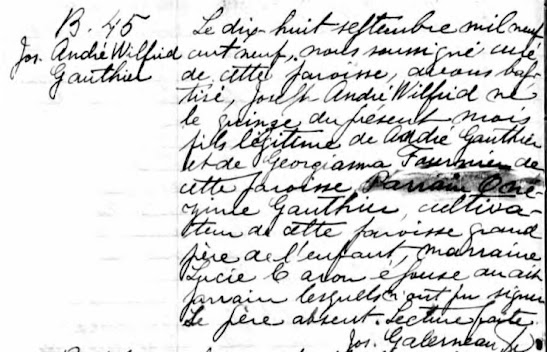 B. 45
Jos. André Wilfrid
Gauthier
Le dix-huit septembre mil neuf
cent neuf, nous soussigné curé
de cette paroisse, avons bap-
tisé, Joseph André Wilfrid né
le quinze du présent mois
fils légitime de André Gauthier
et de Georgianna Fournier de
cette paroisse Parrain Oné-
zime Gauthier, cultiva-
teur de cette paroisse grand
père de l'enfant, marraine
Lucie Caron épouse du dit
parrain lesquels n'ont pu signer
Le père absent. Lecture faite.
Jos. Galerneau